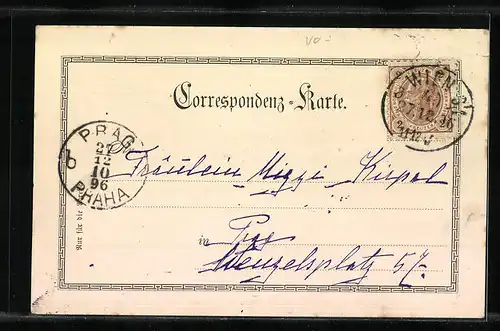 vo-
WIEN
27.12.96
Correspondenz-Karte.
PRAG
27
12
10
96
PRAHA
Fräulein Mizzi
in Prag
Wenzelsplatz 57.
Nur für die